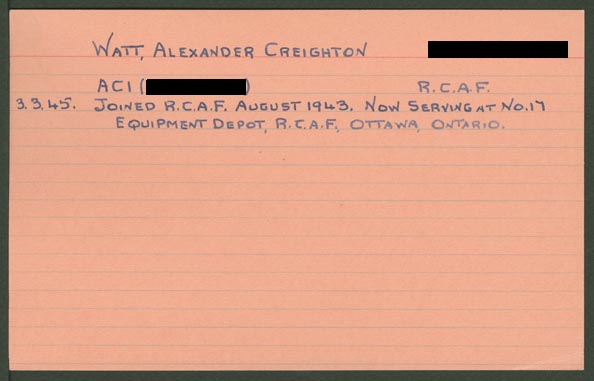 WATT, ALEXANDER CREIGHTON
AC1 ( ) R.C.A.F.
3.3.45. JOINED R.C.A.F. AUGUST 1943. NOW SERVING AT NO.17
EQUIPMENT DEPOT, R.C.A.F, OTTAWA, ONTARIO.